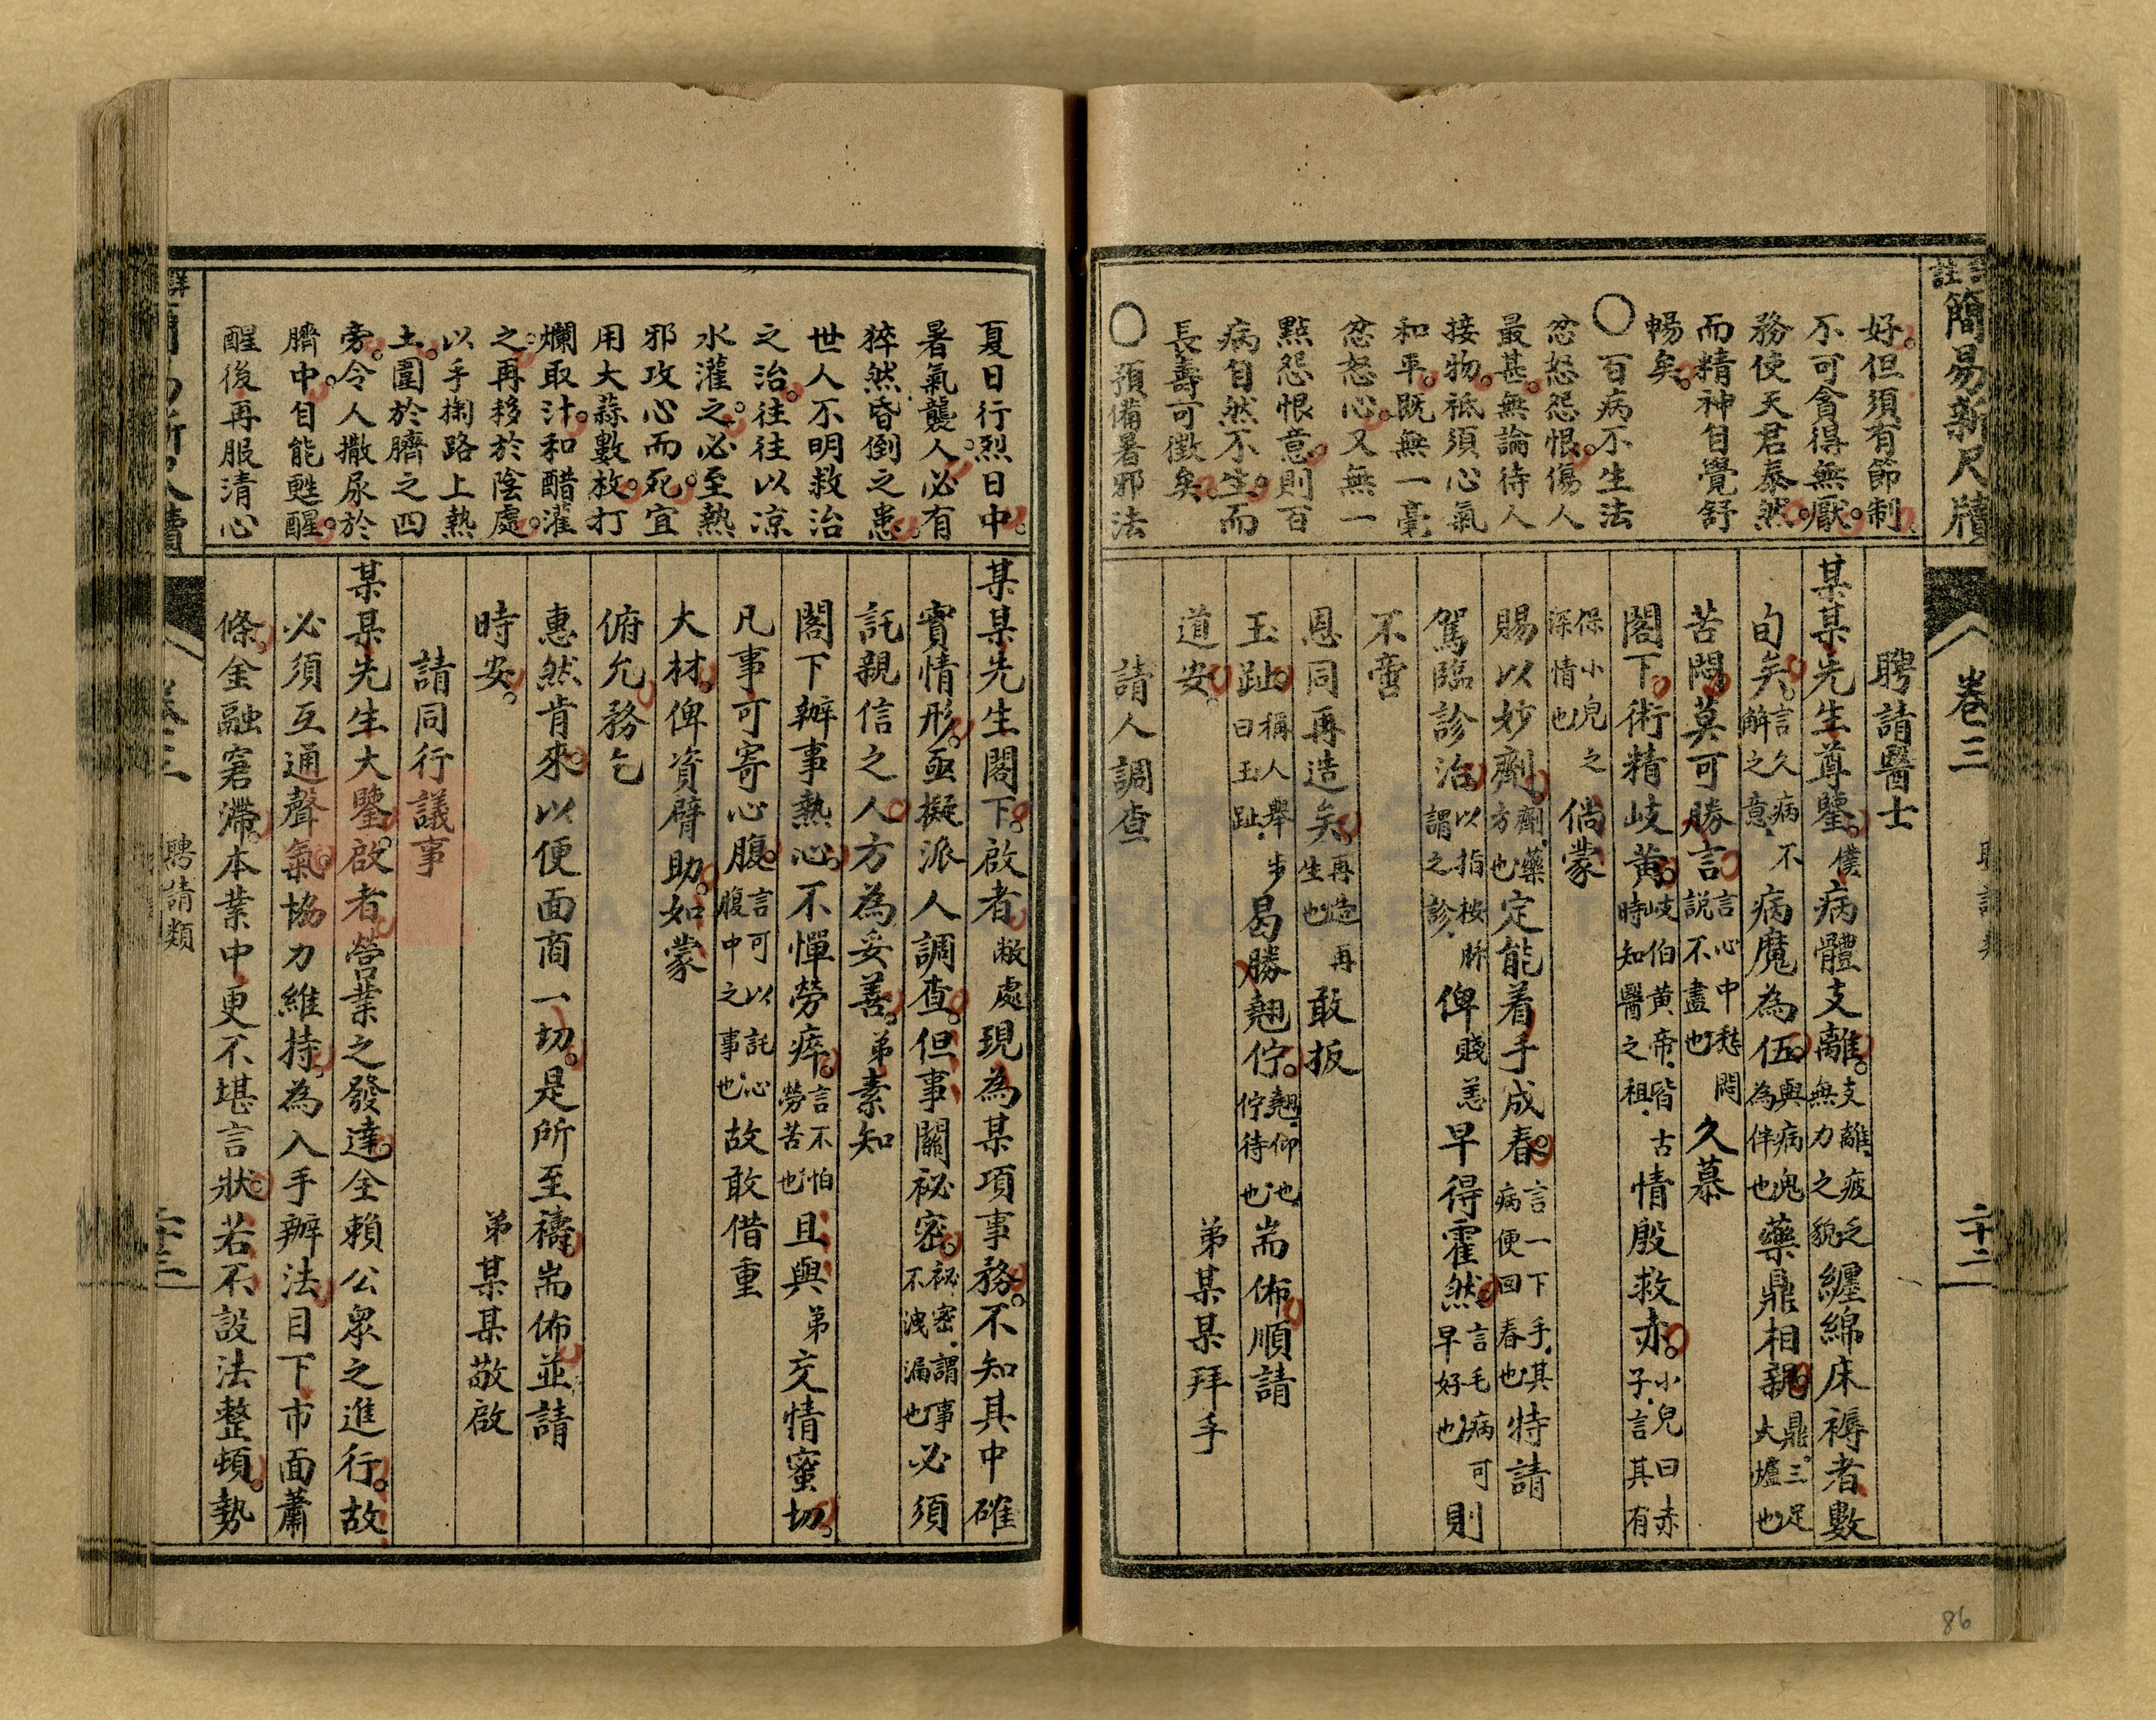 簡易新尺牘
卷三
二十二
好。但須有節制。
不可貪得無厭。
務使天君泰然。
而精神自覺舒
暢矣。
○百病不生法
忿怒怨恨。傷人
最甚。無論待人
接物。祗須心氣
和平。既無一毫
忿怒心。又無一
點怨恨意。則百
病自然不生。而
長壽可徵矣。
○預備暑邪法
聘請醫士
某某先生尊鑒。僕病體支離。支離、疲乏無力之貌纏綿床褥者數
旬矣。言久病不解之意、病魔為伍。與病鬼為伴也藥鼎相親。鼎、三足大爐也
苦悶莫可勝言。言心中愁悶說不盡也久慕
閣下。術精岐黃。岐伯黃帝、皆古時知醫之祖、情殷救赤。小兒曰赤子、言其有
保小兒之深情也倘蒙
賜以妙劑。劑、藥方也定能着手成春。言一下手、其病便回春也特請
駕臨診治。以指按脈謂之診、俾賤恙早得霍然。言毛病可早好也則
不啻
恩同再造矣。再造、再生也敢扳
玉趾。稱人舉步曰玉趾、曷勝翹佇。翹、仰也、佇待也耑佈。順請
道安。弟某某拜手
請人調查
夏日行烈日中。
暑氣襲人。必有
猝然昏倒之患。
世人不明救治
之治。往往以凉
水灌之。必至熱
邪攻心而死。宜
用大蒜數枚。打
爛取汁。和醋灌
之。再移於陰處。
以手掬路上熱
土。圍於臍之四
旁。令人撒尿於
臍中。自能甦醒。
醒後再服清心
某某先生閣下。啟者敝處現為某項事務。不知其中確
實情形。亟擬派人調查。但事關祕密。祕密、謂事不洩漏也必須
託親信之人。方為妥善。弟素知
閣下辦事熱心。不憚勞瘁。言不怕勞苦也且與弟交情蜜切。
凡事可寄心腹。言可以託心腹中之事也故敢借重
大材。俾資臂助。如蒙
俯允。務乞
惠然肯來。以便面商一切。是所至禱。耑佈並請
時安。弟某某敬啟
請同行議事
某某先生大鑒。啟者營業之發達。全賴公眾之進行。故
必須互通聲氣。協力維持。為入手辦法。目下市面蕭
條。金融窘滯。本業中更不堪言狀。若不設法整頓。勢
聘請類